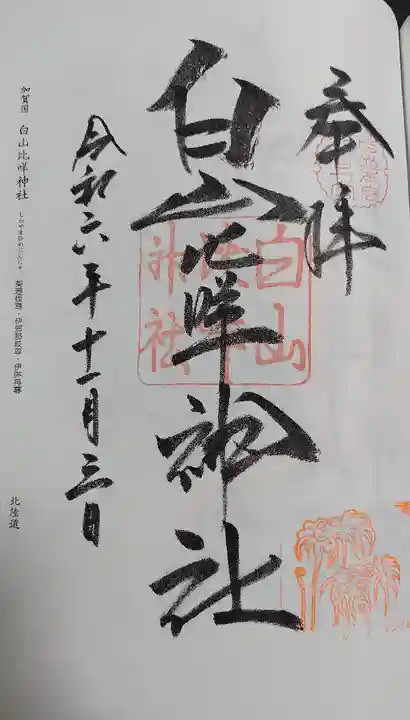 奉拝
白山比咩神社
白山
比咩
神社
令和六年十一月三日
加賀国 白山比咩神社 しらやまひめじんじゃ 菊理媛尊・伊弉諾尊・伊弉冉尊
北陸道